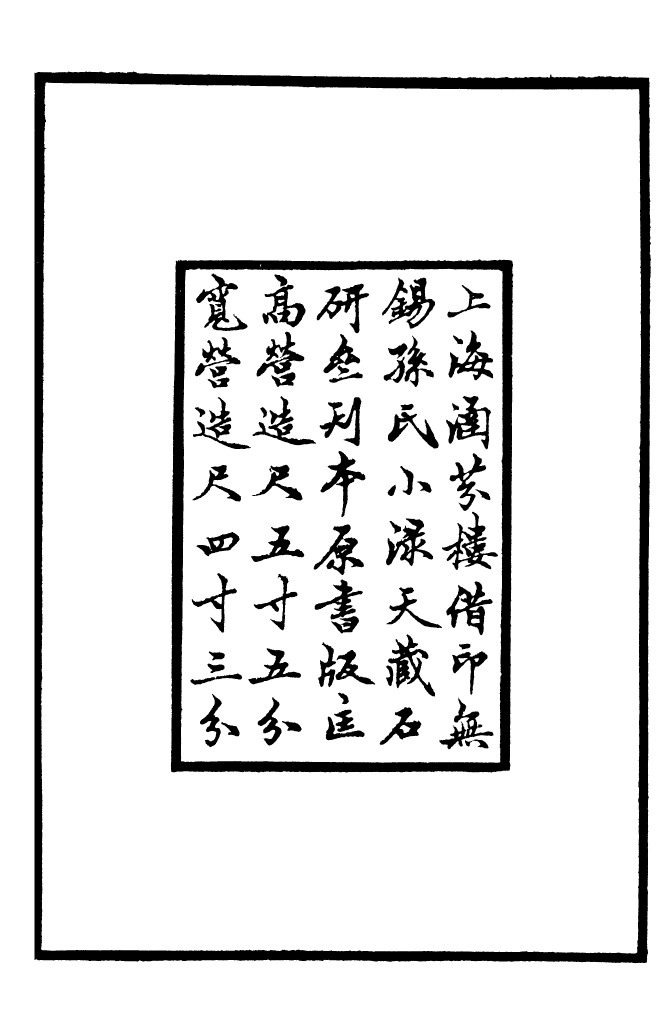 上海涵芬樓借印無
錫孫氏小淥天藏石
研齋刋本原書版匡
高營造尺五寸五分
寬營造尺四寸三分